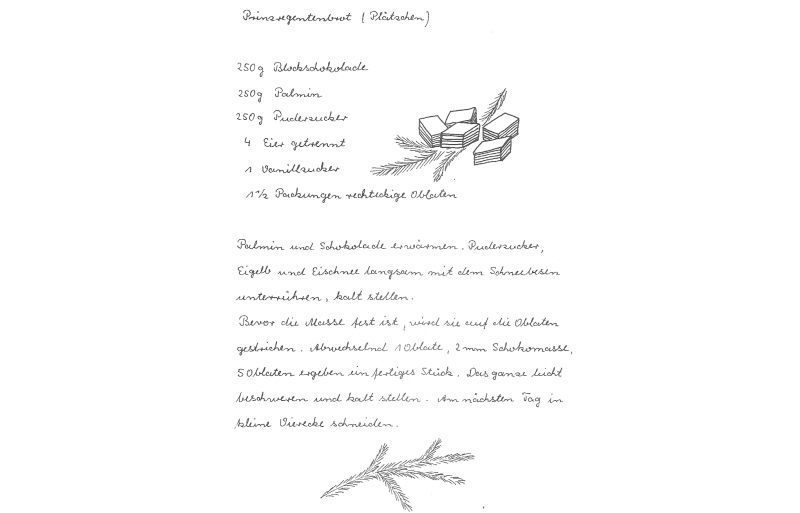 Prinzregentenbrot (Plätzchen)
250g Blockschokolade
250g Palmin
250g Puderzucker
4 Eier getrennt
1 Vanillzucker
1 1/2 Packungen rechteckige Oblaten
Palmin und Schokolade erwärmen. Puderzucker,
Eigelb und Eischnee langsam mit dem Schneebesen
unterrühren, kalt stellen.
Bevor die Masse fest ist, wird sie auf die Oblaten
gestrichen. Abwechselnd 1 Oblate, 2mm Schokomasse,
5 Oblaten ergeben ein fertiges Stück. Das ganze leicht
beschweren und kalt stellen. Am nächsten Tag in
kleine Vierecke schneiden.